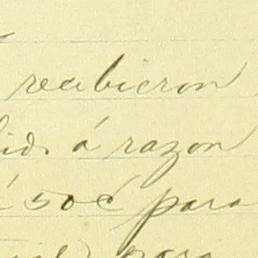 recibieron
á razon
50¢ para
para